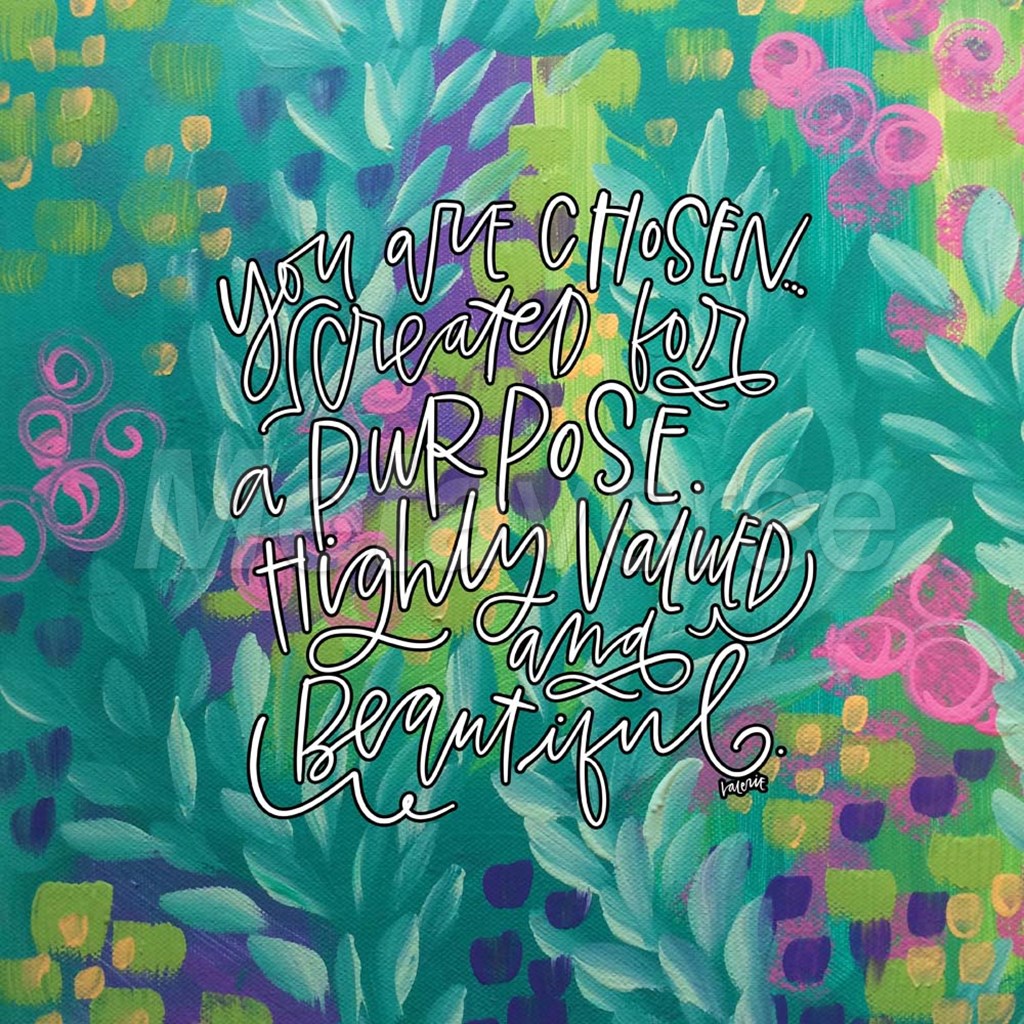 you are CHOSEN...
Created for
a PURPOSE.
Highly Valued
and
Beautiful.
Valerie